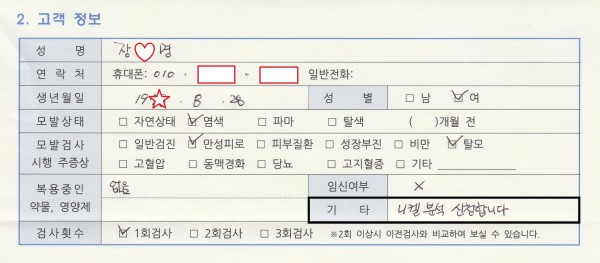 2. 고객 정보
성 명 장 명
연 락 처 휴대폰: 010 - - 일반전화:
생년월일 19 . 8 . 28 성 별 □ 남 ☑ 여
모발상태 □ 자연상태 ☑ 염색 □ 파마 □ 탈색 ( )개월 전
모발검사 □ 일반검진 ☑ 만성피로 □ 피부질환 □ 성장부진 □ 비만 ☑ 탈모
시행 주증상 □ 고혈압 □ 동맥경화 □ 당뇨 □ 고지혈증 □ 기타
복용중인 없음 임신여부 ×
약물, 영양제 기 타 니켈 분석 신청합니다
검사횟수 ☑ 1회검사 □ 2회검사 □ 3회검사 ※2회 이상시 이전검사와 비교하여 보실 수 있습니다.